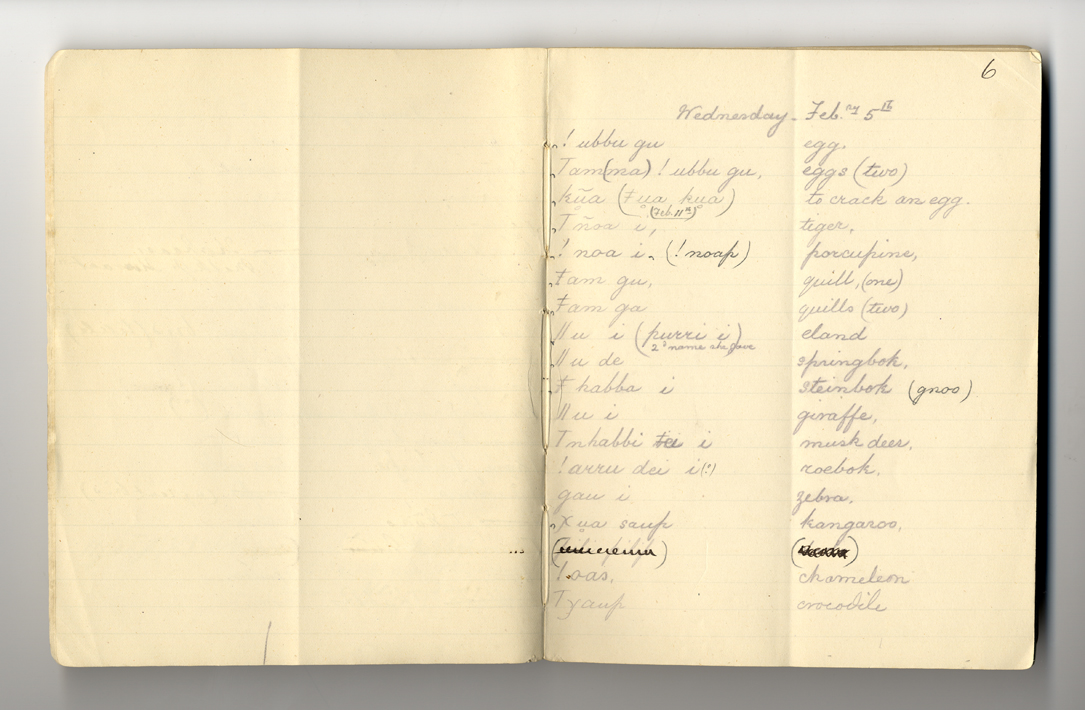 6
Wednesday - Feb.ry 5th
! ubbu gu egg.
Tam(ma) ! ubbu gu, eggs (two)
kũa (ŧ ua kua) to crack an egg.
(Feb. 11th)
T ñoa i, tiger,
! noa i. (! noap) porcupine,
ŧam gu, quill, (one)
ŧam ga quills (two)
ǁ u i (purri i) eland
2d name she gave
ǁ u de springbok,
ŧ habba i steinbok (gnoo)
ǁ u i giraffe,
Tnhabbi i musk deer,
! arru dei i (?) roebok.
gau i zebra,
χ ua saup kangaroo,
! oas, chameleon
Tχaup crocodile